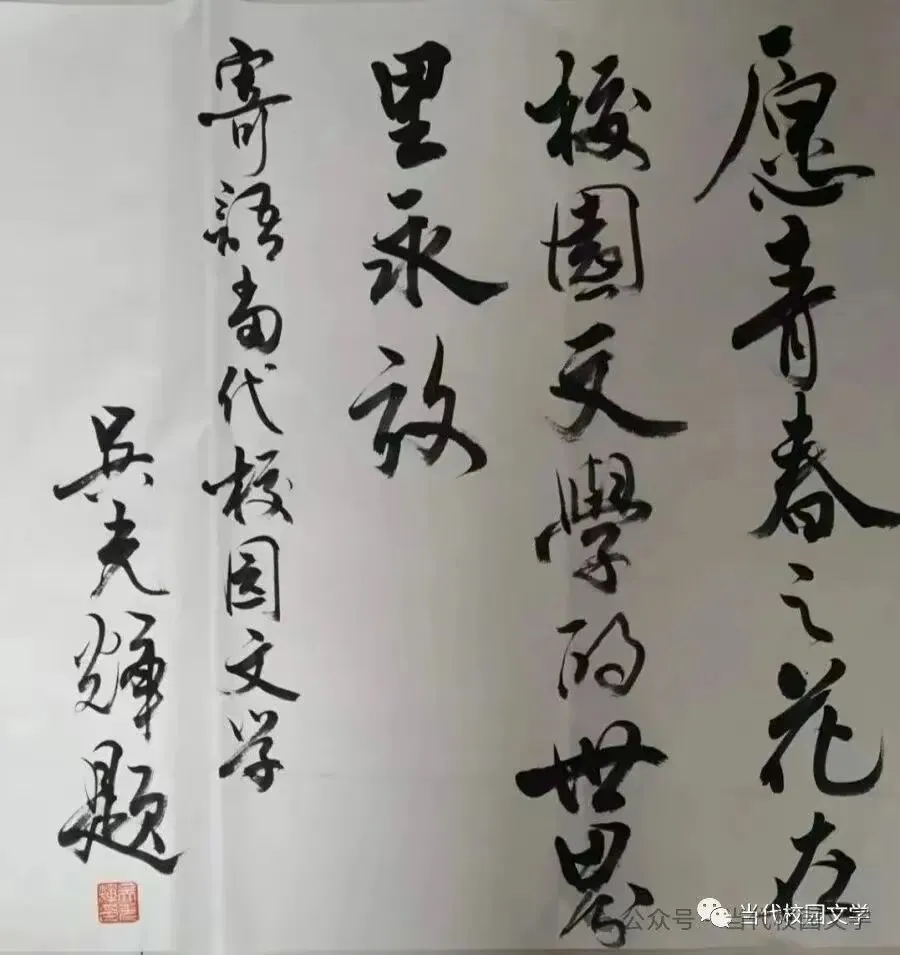 愿青春之花在
校園文學的世界
里永放
寄語当代校园文学
吴光輝题
公众号·当代校园文学
当代校园文学